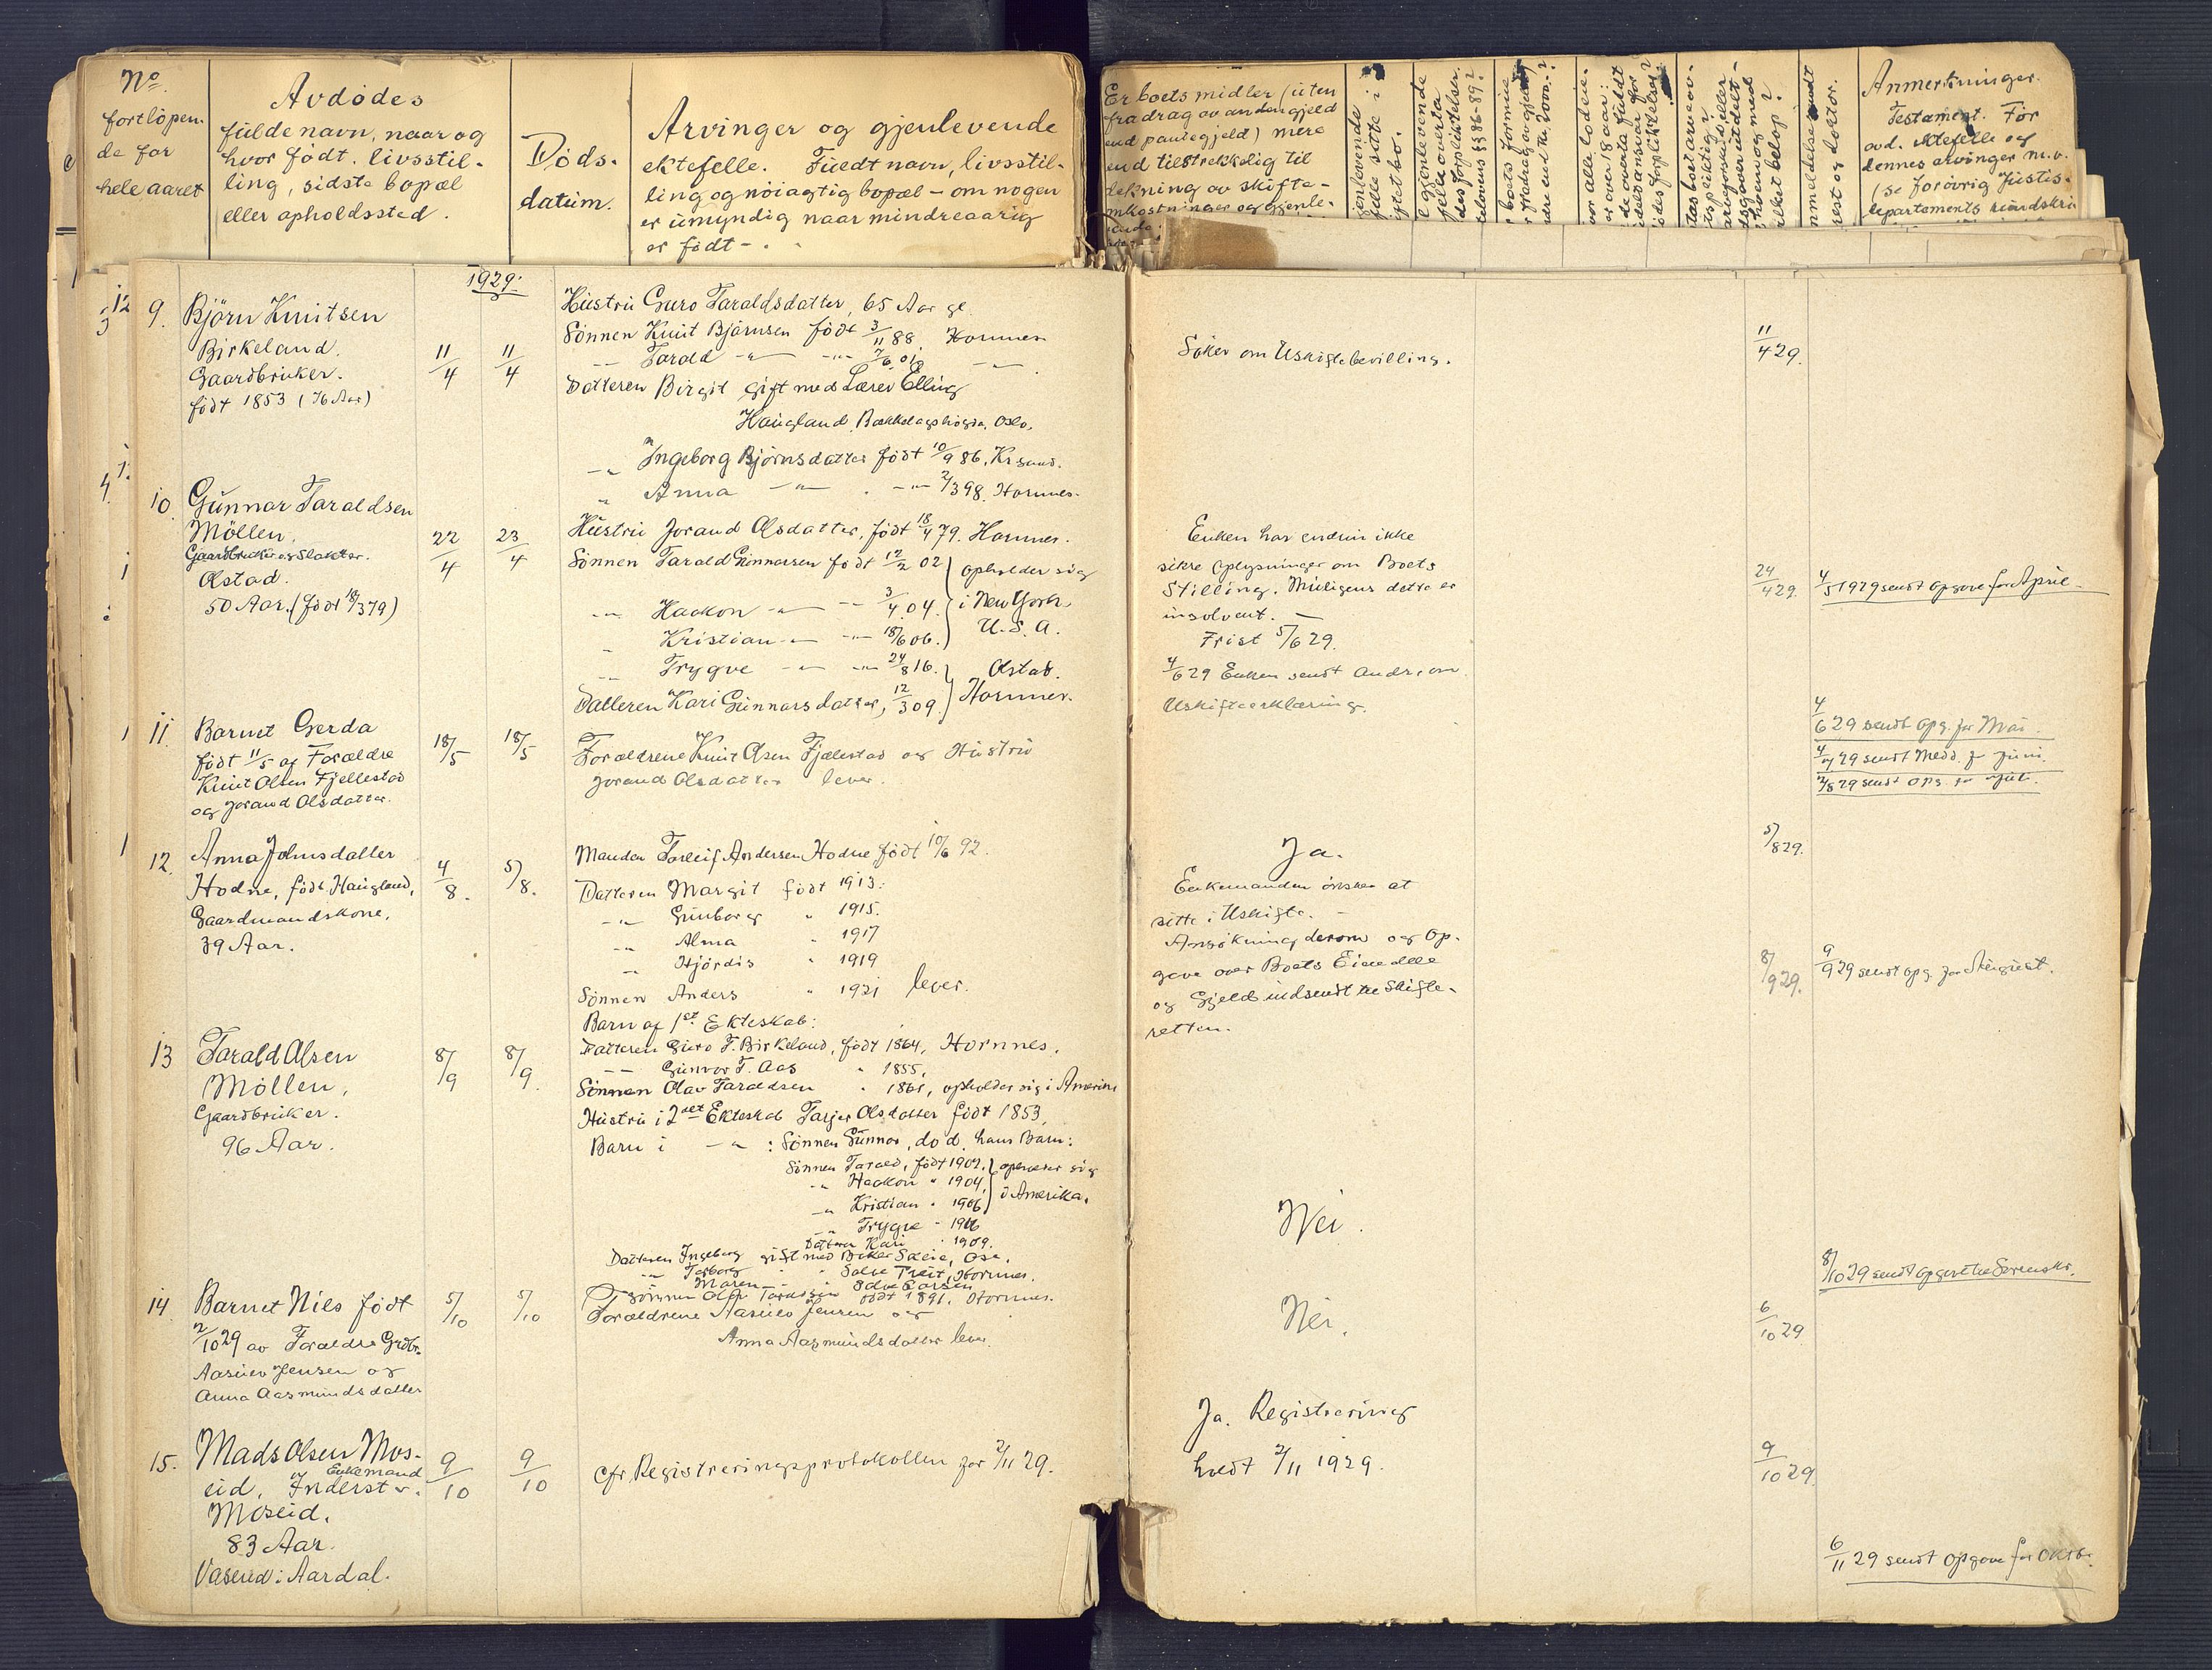 No
fortløpen-
de for
hele aaret
Avdødes
fulde navn, naar og
hvor født. livsstil-
ling, sidste bopæl
eller opholdssted.
Døds-
datum.
Arvinger og gjenlevende
ektefelle. Fuldt navn, livsstil-
ling og nøiagtig bopæl – om nogen
er umyndig naar mindreaarig
er født –
Er boets midler (uten
fradrag av anden gjeld
end pantegjeld) mere
end tilstrekkelig til
dekning av skifte-
omkostninger og gjenle-
Anmerkninger.
Testament. For
avd. ektefelle og
dennes arvinger m.v.
(se forøvrig Justis-
departements rundskri
1929.
9. Björn Knutsen
Birkeland.
Gaardbruker.
født 1853 (76 Aar)
11/4 11/4
Hustru Guro Taraldsdatter, 65 Aar gl.
Sönnen Knut Björnsen født 3/11 88. Hornnes
–"– Tarald –"– –"– 7/6 01. –"–
Datteren Birgit gift med Lærer Elling
Haugland, Bækkelagshøgda, Oslo.
–"– Ingeborg Björnsdatter født 10/9 86, Krsand.
" Anna –"– –"– 2/3 98. Hornnes.
Söker om Uskiftebevilling.
11/4 29.
10. Gunnar Taraldsen
Möllen.
Gaardbruker og Slakter.
Ølstad.
50 Aar. (født 18/3 79)
22/4 23/4
Hustru Jorand Olsdatter, født 18/4 79. Hornnes.
Sönnen Tarald Gunnarsen født 12/2 02 opholder sig
–"– Haakon –"– –"– 3/4 04. i New York,
" Kristian –"– –"– 18/6 06. U.S.A.
–"– Trygve –"– –"– 24/8 16. Ølstad.
Datteren Kari Gunnarsdatter, 12/3 09. Hornnes.
Enken har endnu ikke
sikre oplysninger om Boets
Stilling. Muligens dette er
insolvent. –
Frist 5/6 29.
4/6 29 Enken sendt andr. om
Uskifteerklæring.
24/4 29.
4/5 1929 sendt Opgave for April
11. Barnet Gerda
født 11/5 af Forældre
Knut Olsen Fjellestad
og Jorand Olsdatter.
18/5 18/5
Forældrene Knut Olsen Fjellestad og Hustru
Jorand Olsdatter lever.
4/6 29 sendt Opg. for Mai.
4/7 29 sendt Medd. f. Juni.
2/8 29 sendt Opg. for Juli.
12. Anna Johnsdatter
Hodne, født Haugland,
Gaardmandskone,
39 Aar.
4/8. 5/8.
Manden Torleif Andersen Hodne født 10/6 92.
Datteren Margit født 1913.
–"– Gunborg " 1915.
–"– Alma " 1917
–"– Hjördis " 1919
Sönnen Anders " 1921 lever.
Ja.
Enkemanden önsker at
sitte i Uskifte. –
Ansökning derom og Op-
gave over Boets Eiendele
og Gjeld indsendt til Skifte-
retten.
5/8 29.
8/9 29.
9/9 29 sendt opg. for August.
13 Tarald Olsen
Möllen,
Gaardbruker.
96 Aar.
8/9 8/9.
Barn af 1st Ekteskab:
Datteren Guro T. Birkeland, født 1864, Hornnes.
–"– Gunvor T. Aas " 1855,
Sönnen Olav Taraldsen " 1861, opholder sig i Amerika
Hustru i 2det Ekteskab Tarjer Olsdatter født 1853,
Barn i –"– : Sönnen Gunnar, död. hans Barn:
Sönnen Tarald, født 1902, opholder sig
–"– Haakon " 1904, i Amerika.
–"– Kristian " 1906
–"– Trygve " 1916
Datteren Kari " 1909.
Datteren Ingeborg gift med
–"– Torborg " Hornnes.
–"– Maren –"– " Salve Larsen
født 1891. Hornnes.
Nei.
8/10 29 sendt opgave til Sorensk.
14. Barnet Nils født
2/10 29 av Forældre Grdbr.
Aasulv Jensen og
Anna Aasmundsdatter
5/10 5/10
Forældrene Aasulv Jensen og
Anna Aasmundsdatter lever.
Nei.
6/10 29
15. Mads Olsen Mos-
eid, Inderst og Enkemand
Moseid.
83 Aar.
9/10 9/10
Cfr. Registreringsprotokollen for 2/11 29.
Ja. Registrering
holdt 2/11 1929.
9/10 29.
6/11 29 sendt Opgave for Oktbr.